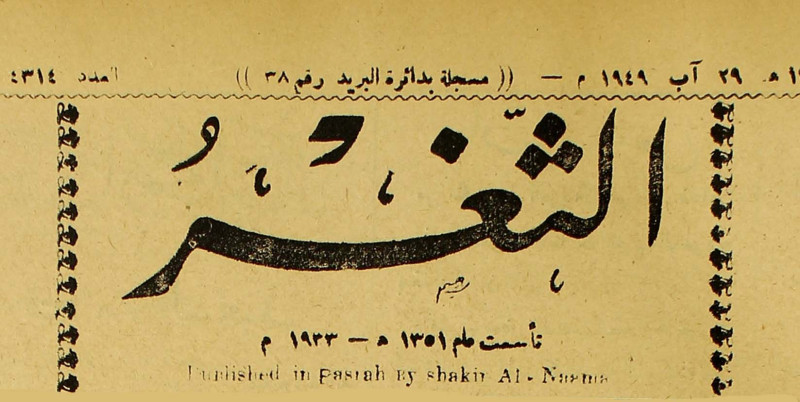 ھ ٢٩ آب ١٩٤٩ م — (( مسجلة بدائرة البريد رقم ٣٨ )) العدد ٤٣١٤
الثغر
تأسست عام ١٣٥١ ھ — ١٩٣٣ م
Published in Basrah By shakir Al - Naama